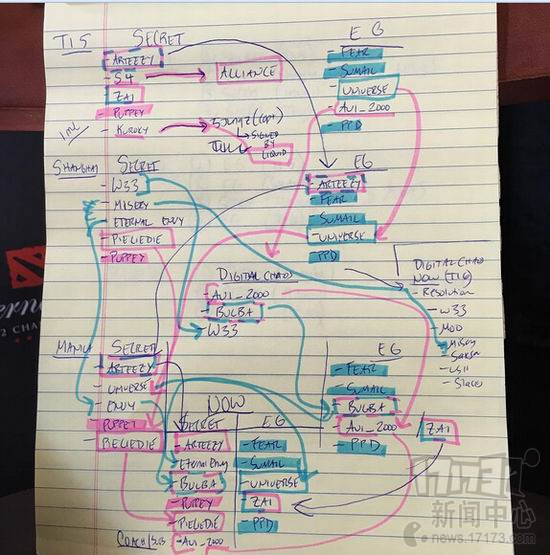 TI5
SECRET
- ARTEEZY
- S4
- ZAI
- PUPPEY
- KUROKY
ALLIANCE
5JUNGZ (
SIGNED
BY
LIQUID
EG
- FEAR
- SUMAIL
- UNIVERSE
- AUI_2000
- PPD
SHANGHAI
SECRET
- W33
- MISERY
- ETERNAL ENVY
- PIELIEDIE
- PUPPEY
EG
- ARTEEZY
- FEAR
- SUMAIL
- UNIVERSE
- PPD
DIGITAL CHAOS
- AUI_2000
- BULBA
- W33
DIGITAL CHAOS
NOW (TI6)
- Resolution
- W33
- MOO
- Misery
- Saksa
MANILA
SECRET
- ARTEEZY
- UNIVERSE
- ENVY
- PUPPEY
- PIELIEDIE
EG
- FEAR
- SUMAIL
- BULBA
- AUI_2000
- PPD
/ZAI
NOW
SECRET
- ARTEEZY
- Eternal Envy
- BULBA
- PUPPEY
- PIELIEDIE
COACH/SUBS - AUI_2000
EG
- FEAR
- SUMAIL
- UNIVERSE
ZAI
- PPD
2 CHA
新闻中心
news.17173.com